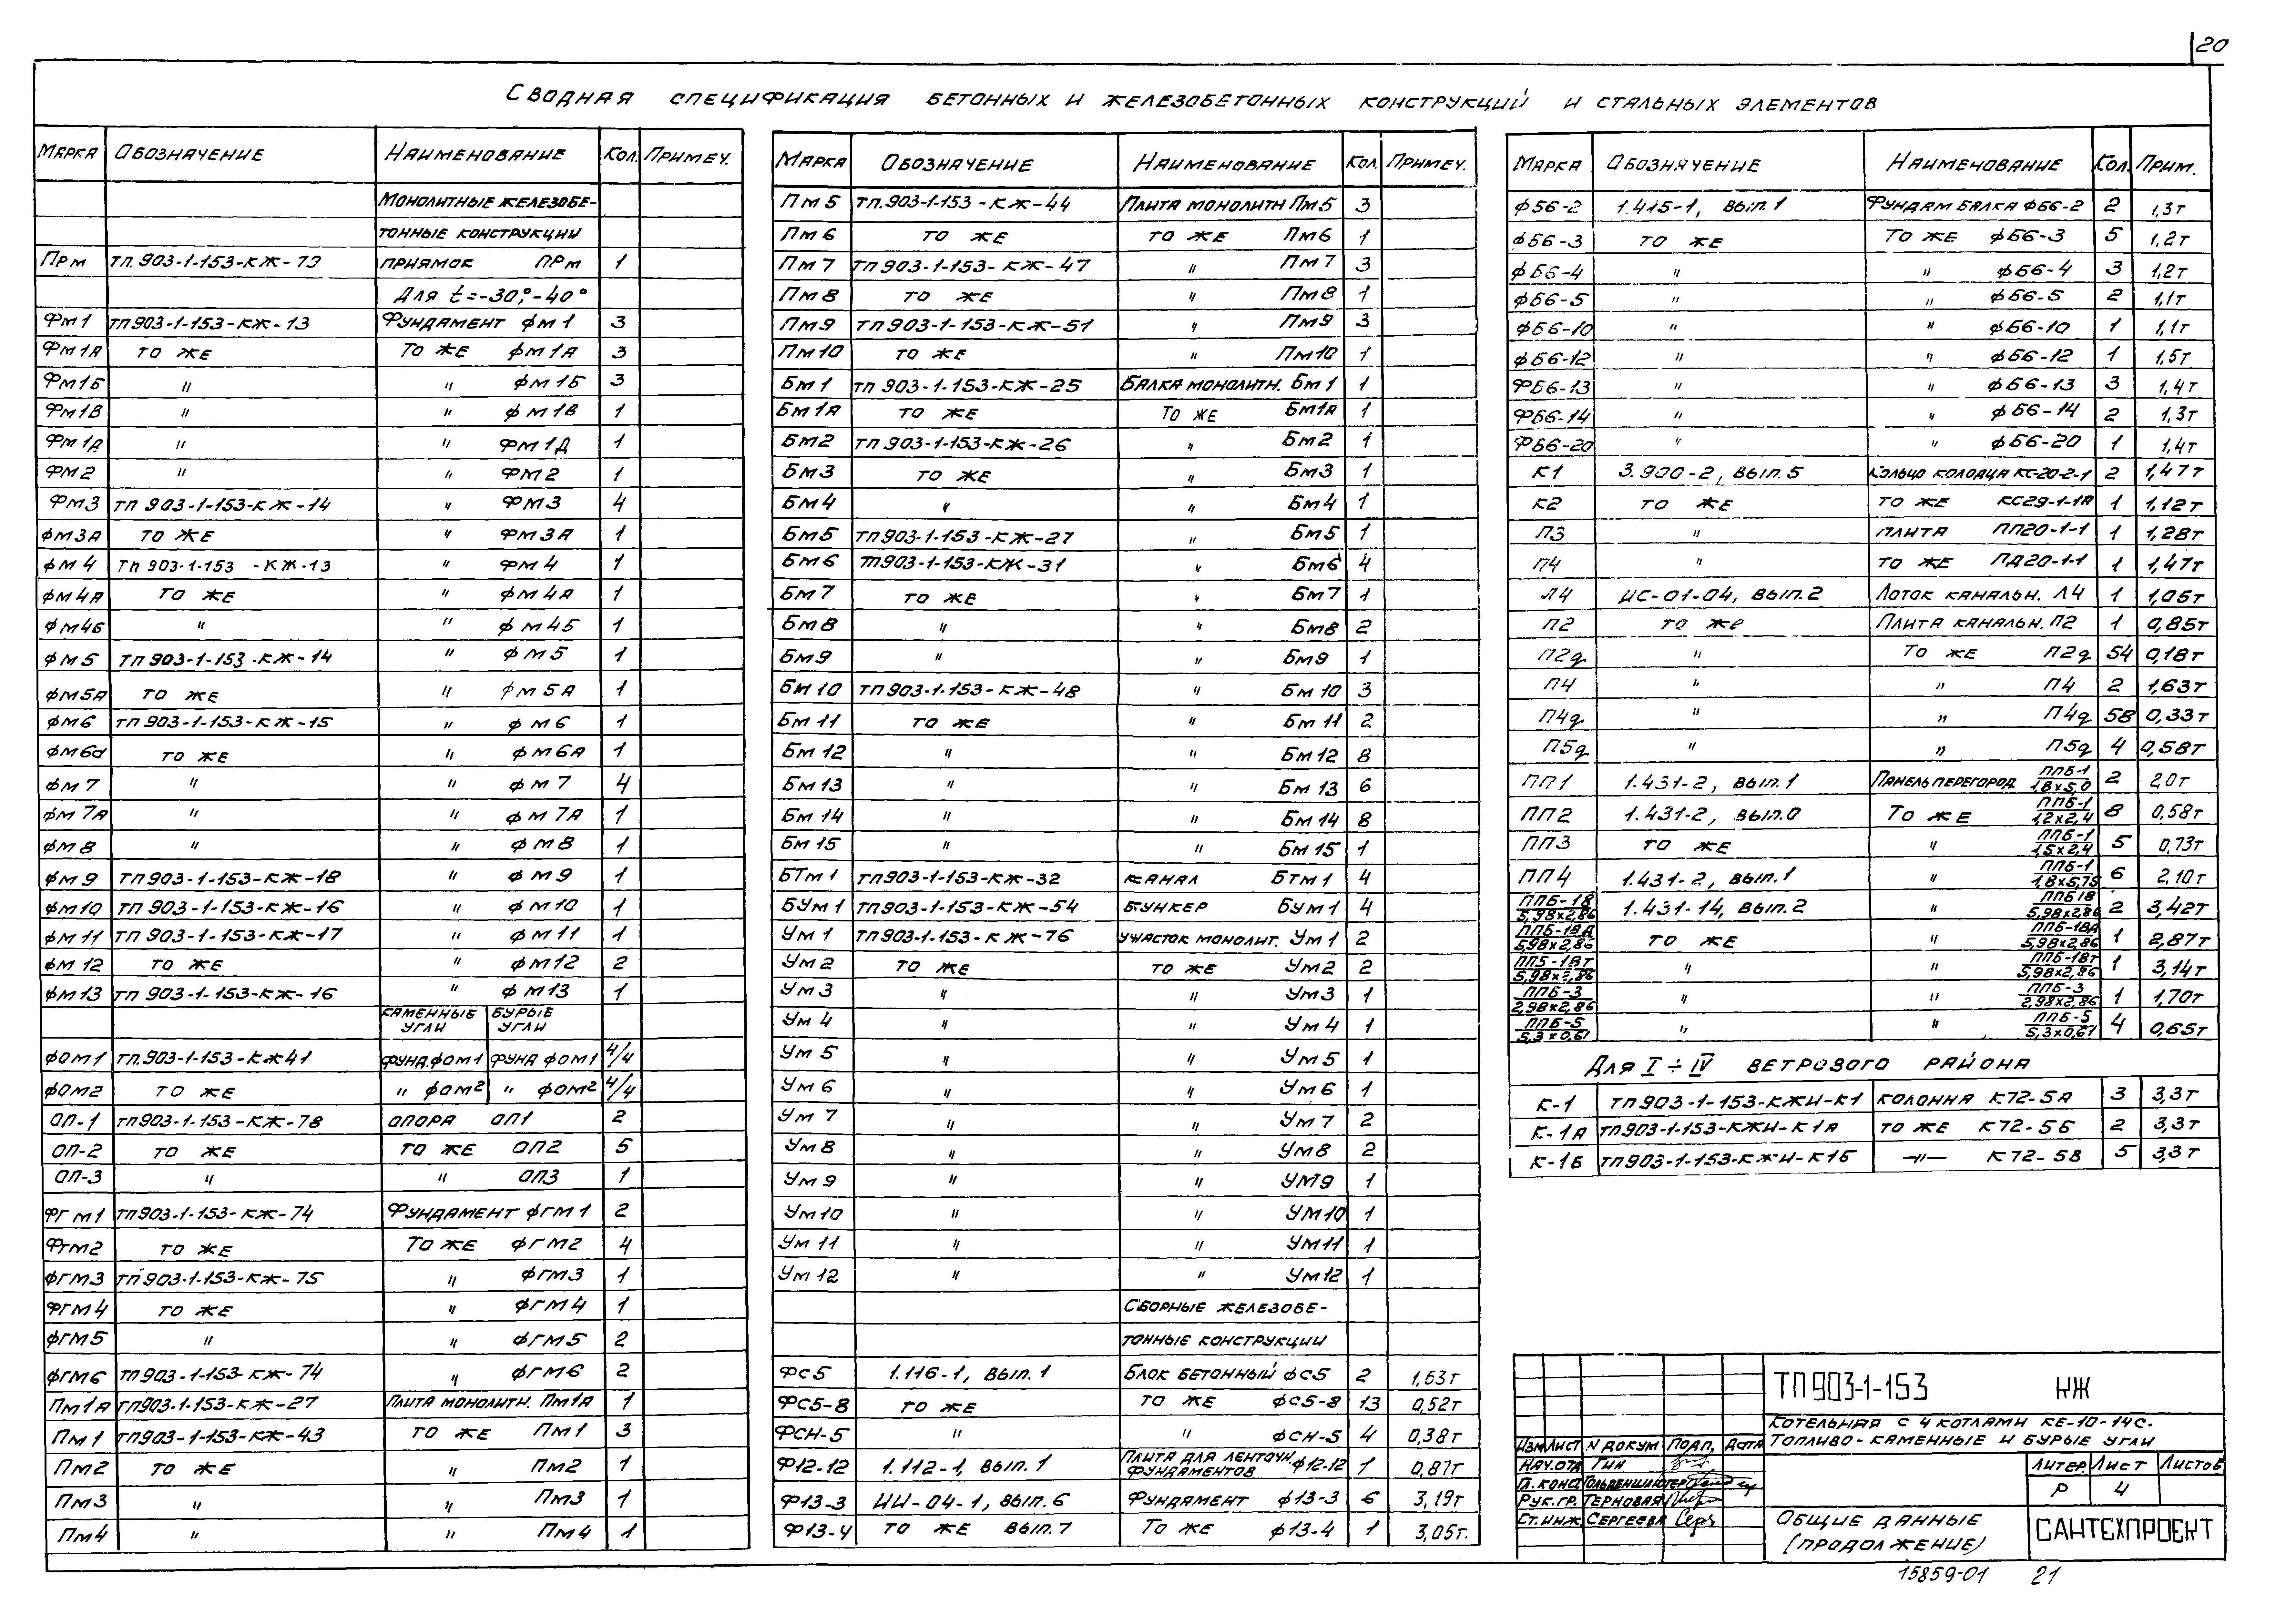 20
Сводная спецификация бетонных и железобетонных конструкций и стальных элементов
Марка Обозначение Наименование Кол. Примеч.
Монолитные железобе-
тонные конструкции
Прм ТП.903-1-153-КЖ-73 приямок Прм 1
Для t=-30°;-40°
Фм1 ТП903-1-153-КЖ-13 Фундамент Фм1 3
Фм1А то же То же Фм1А 3
Фм1Б " " Фм1Б 3
Фм1В " " Фм1В 1
Фм1Д " " Фм1Д 1
Фм2 " " Фм2 1
Фм3 ТП 903-1-153-КЖ-14 " Фм3 4
Фм3А то же " Фм3А 1
Фм4 ТП 903-1-153 -КЖ-13 " Фм4 1
Фм4А то же " Фм4А 1
Фм4Б " " Фм4Б 1
Фм5 ТП 903-1-153-КЖ-14 " Фм5 1
Фм5А то же " Фм5А 1
Фм6 ТП 903-1-153-КЖ-15 " Фм6 1
Фм6а то же " Фм6А 1
Фм7 " " Фм7 4
Фм7А " " Фм7А 1
Фм8 " " Фм8 1
Фм9 ТП903-1-153-КЖ-18 " Фм9 1
Фм10 ТП 903-1-153-КЖ-16 " Фм10 1
Фм11 ТП 903-1-153-КЖ-17 " Фм11 1
Фм12 то же " Фм12 2
Фм13 ТП 903-1-153-КЖ-16 " Фм13 1
Каменные угли Бурые угли
Фом1 ТП.903-1-153-КЖ41 Фунд.Фом1 Фунд Фом1 4/4
Фом2 то же " Фом2 " Фом2 4/4
ОП-1 ТП903-1-153-КЖ-78 опора ОП1 2
ОП-2 то же то же ОП2 5
ОП-3 " " ОП3 1
Фгм1 ТП903-1-153-КЖ-74 Фундамент Фгм1 2
Фгм2 то же То же Фгм2 4
Фгм3 ТП903-1-153-КЖ-75 " Фгм3 1
Фгм4 то же " Фгм4 1
Фгм5 " " Фгм5 2
Фгм6 ТП903-1-153-КЖ-74 " Фгм6 2
Пм1А ТП903-1-153-КЖ-27 Плита монолитн. Пм1А 1
Пм1 ТП903-1-153-КЖ-43 то же Пм1 3
Пм2 то же " Пм2 1
Пм3 " " Пм3 1
Пм4 " " Пм4 1
Марка Обозначение Наименование Кол. Примеч.
Пм5 ТП.903-1-153-КЖ-44 Плита монолитн Пм5 3
Пм6 то же то же Пм6 1
Пм7 ТП903-1-153-КЖ-47 " Пм7 3
Пм8 то же " Пм8 1
Пм9 ТП903-1-153-КЖ-51 " Пм9 3
Пм10 то же " Пм10 1
Бм1 ТП 903-1-153-КЖ-25 Балка монолитн. Бм1 1
Бм1А то же То же Бм1А 1
Бм2 ТП 903-1-153-КЖ-26 " Бм2 1
Бм3 то же " Бм3 1
Бм4 " " Бм4 1
Бм5 ТП903-1-153-КЖ-27 " Бм5 1
Бм6 ТП903-1-153-КЖ-31 " Бм6 4
Бм7 то же " Бм7 1
Бм8 " " Бм8 2
Бм9 " " Бм9 1
Бм10 ТП903-1-153-КЖ-48 " Бм10 3
Бм11 то же " Бм11 2
Бм12 " " Бм12 8
Бм13 " " Бм13 6
Бм14 " " Бм14 8
Бм15 " " Бм15 1
БТм1 ТП903-1-153-КЖ-32 канал БТм1 4
БУм1 ТП903-1-153-КЖ-54 бункер БУм1 4
Ум1 ТП903-1-153-КЖ-76 участок монолит. Ум1 2
Ум2 то же то же Ум2 2
Ум3 " " Ум3 1
Ум4 " " Ум4 1
Ум5 " " Ум5 1
Ум6 " " Ум6 1
Ум7 " " Ум7 2
Ум8 " " Ум8 2
Ум9 " " Ум9 1
Ум10 " " Ум10 1
Ум11 " " Ум11 1
Ум12 " " Ум12 1
Сборные железобе-
тонные конструкции
ФС5 1.116-1, вып.1 Блок бетонный ФС5 2 1,63т
ФС5-8 то же то же ФС5-8 13 0,52т
ФСН-5 " " ФСН-5 4 0,38т
Ф12-12 1.112-1, вып.1 Плита для ленточн. фундаментов Ф12-12 1 0,87т
Ф13-3 ИИ-04-1, вып.6 Фундамент Ф13-3 6 3,19т
Ф13-4 то же вып.7 То же Ф13-4 1 3,05т.
Марка Обозначение Наименование Кол. Прим.
ФБ6-2 1.415-1, вып.1 Фундам балка ФБ6-2 2 1,3т
ФБ6-3 то же То же ФБ6-3 5 1,2т
ФБ6-4 " " ФБ6-4 3 1,2т
ФБ6-5 " " ФБ6-5 2 1,1т
ФБ6-10 " " ФБ6-10 1 1,1т
ФБ6-12 " " ФБ6-12 1 1,5т
ФБ6-13 " " ФБ6-13 3 1,4т
ФБ6-14 " " ФБ6-14 2 1,3т
ФБ6-20 " " ФБ6-20 1 1,4т
К1 3.900-2, вып.5 Кольцо колодца КС-20-2-1 2 1,47т
К2 то же то же КС29-1-1А 1 1,12т
П3 " плита ПП20-1-1 1 1,28т
П4 " то же ПД20-1-1 1 1,47т
Л4 ИС-01-04, вып.2 Лоток канальн. Л4 1 1,05т
П2 то же Плита канальн. П2 1 0,85т
П2g " То же П2g 54 0,18т
П4 " " П4 2 1,63т
П4g " " П4g 58 0,33т
П5g " " П5g 4 0,58т
ПП1 1.431-2, вып.1 Панель перегород. ППБ-1/1,8х5,0 2 2,0т
ПП2 1.431-2, вып.0 То же ППБ-1/1,2х2,4 8 0,58т
ПП3 то же " ППБ-1/1,5х2,4 5 0,73т
ПП4 1.431-2, вып.1 " ППБ-1/1,8х5,75 6 2,10т
ППБ-18/5,98х2,86 1.431-14, вып.2 " ППБ18/5,98х2,86 2 3,42т
ППБ-18А/5,98х2,86 то же " ППБ-18А/5,98х2,86 1 2,87т
ППБ-18т/5,98х2,86 " " ППБ-18т/5,98х2,86 1 3,14т
ППБ-3/2,98х2,86 " " ППБ-3/2,98х2,86 1 1,70т
ППБ-5/5,3х0,61 " " ППБ-5/5,3х0,61 4 0,65т
Для I÷IV ветрового района
К-1 ТП903-1-153-КЖИ-К1 колонна К72-5А 3 3,3т
К-1А ТП903-1-153-КЖИ-К1А то же К72-5Б 2 3,3т
К-1Б ТП903-1-153-КЖИ-К1Б -"- К72-5В 5 3,3т
ТП903-1-153 КЖ
Котельная с 4 котлами КЕ-10-14С.
Топливо-каменные и бурые угли
Изм. Лист N докум Подп. Дата
Нач.отд Гин
Гл.конст Гольденшлюгер
Рук.гр. Терновая
Ст.инж. Сергеева
Литер. Лист Листов
Р 4
Общие данные
(продолжение)
САНТЕХПРОЕКТ
15859-01 21